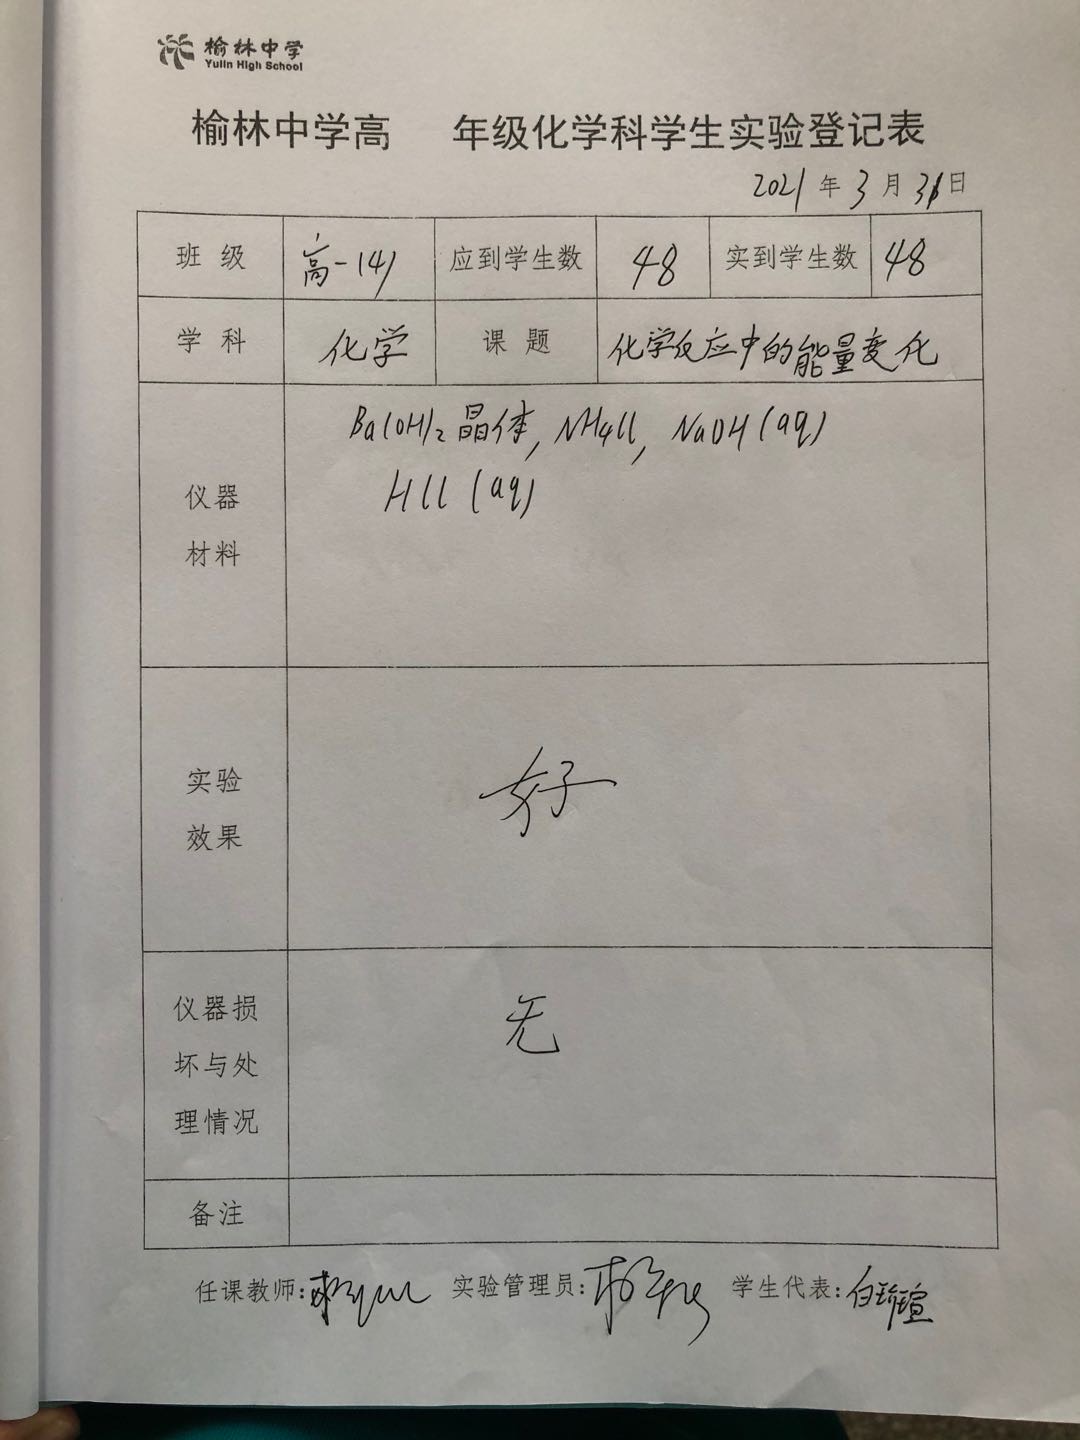 榆林中学
Yulin High School
榆林中学高 年级化学科学生实验登记表
2021 年 3 月 31 日
班级 高一(4) 应到学生数 48 实到学生数 48
学科 化学 课题 化学反应中的能量变化
仪器
材料
Ba(OH)2晶体, NH4Cl, NaOH(aq)
HCl (aq)
实验
效果
好
仪器损
坏与处
理情况
无
备注
任课教师: 实验管理员: 学生代表: